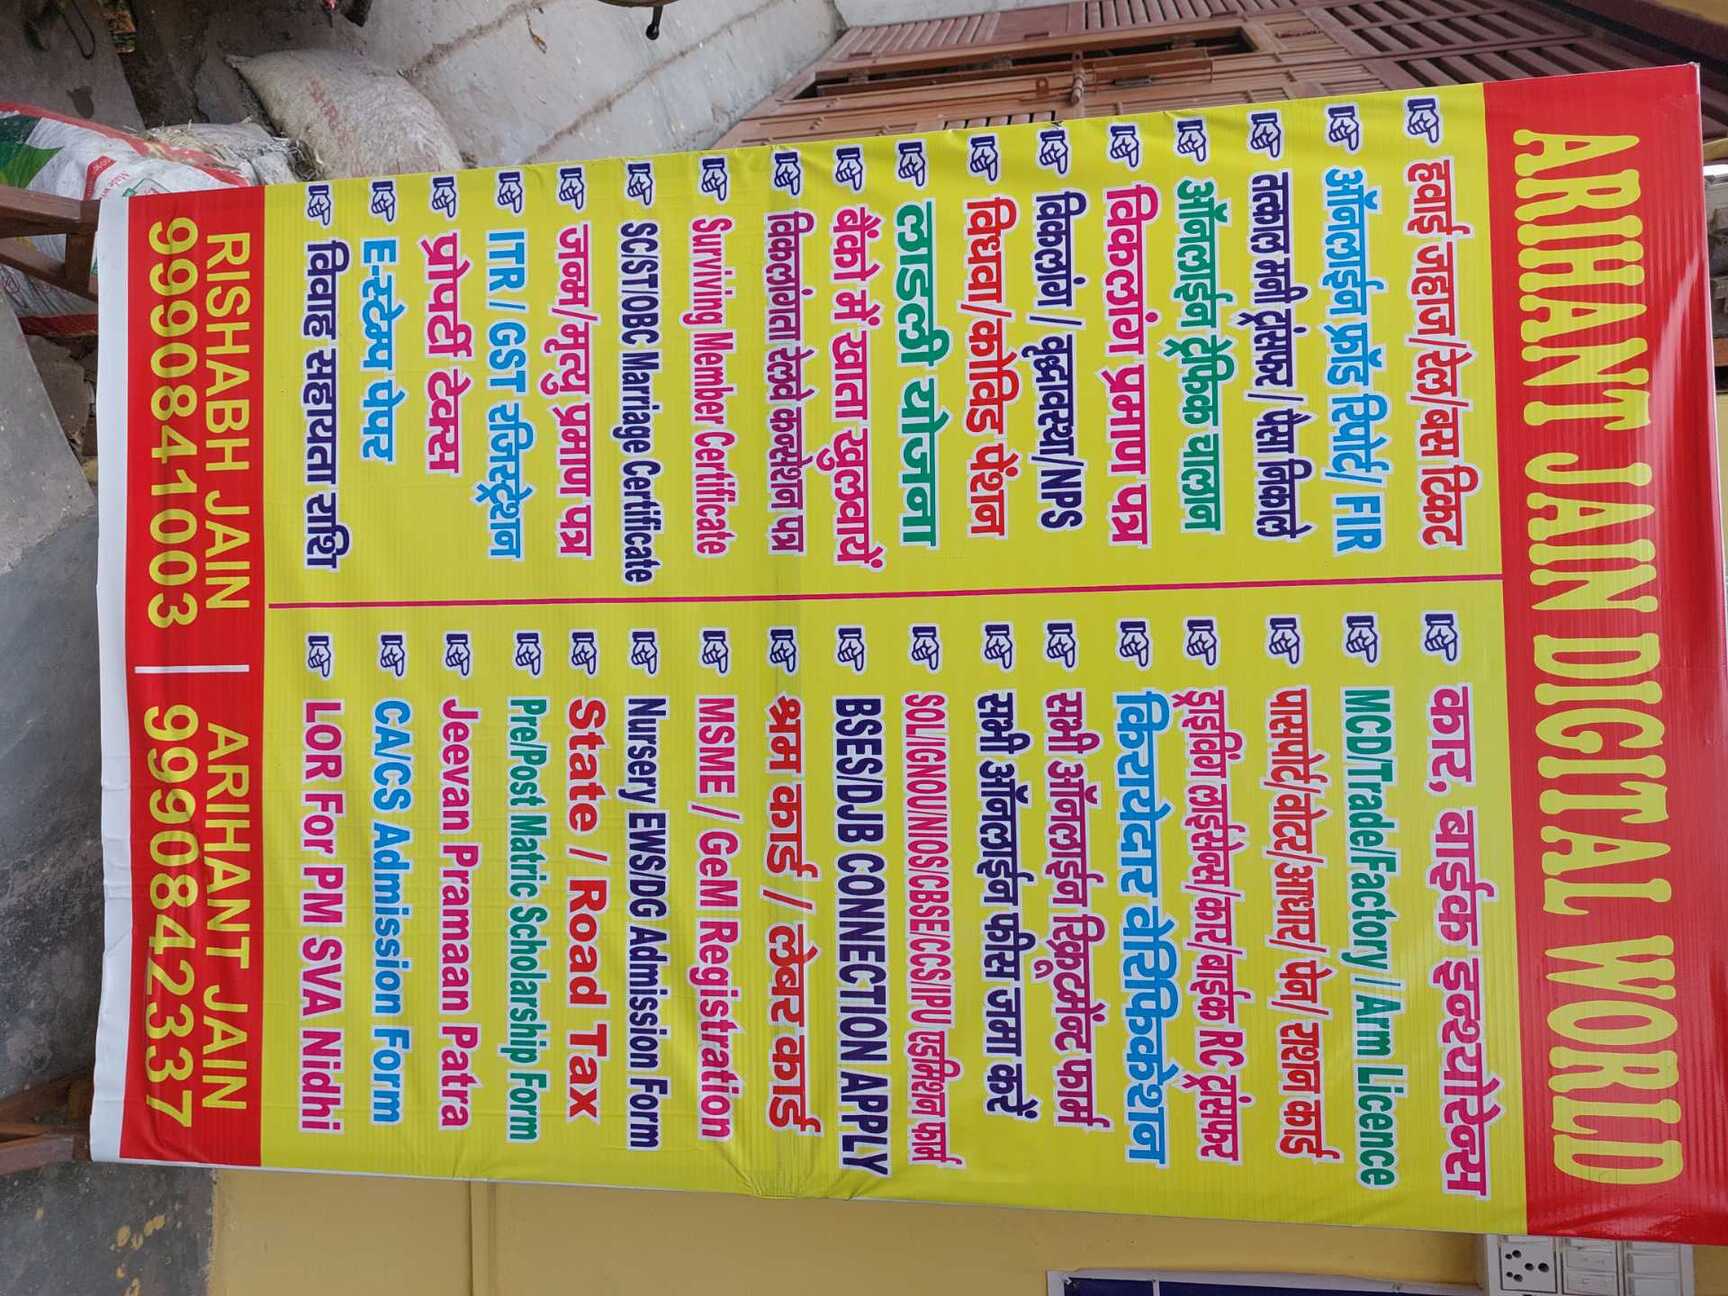 ARIHANT JAIN DIGITAL WORLD
हवाई जहाज/रेल/बस टिकट
ऑनलाईन फ्रॉड रिपोर्ट/ FIR
तत्काल मनी ट्रांसफर/ पैसा निकाले
ऑनलाईन ट्रैफिक चालान
विकलांग प्रमाण पत्र
विकलांग / वृद्धावस्था/NPS
विधवा/कोविड पेंशन
लाडली योजना
बैंको में खाता खुलवायें
विकलांगता रेलवे कन्सेशन पत्र
Surviving Member Certificate
SC/ST/OBC Marriage Certificate
जन्म/मृत्यु प्रमाण पत्र
ITR / GST रजिस्ट्रेशन
प्रोपर्टी टेक्स
E-स्टेम्प पेपर
विवाह सहायता राशि
कार, बाईक इन्श्योरेन्स
MCD/Trade/Factory / Arm Licence
पासपोर्ट/वोटर/आधार/ पेन/ राशन कार्ड
ड्राइविंग लाईसेन्स/कार/बाईक RC ट्रांसफर
किरायेदार वेरिफिकेशन
सभी ऑनलाईन रिक्रूटमेंन्ट फार्म
सभी ऑनलाईन फीस जमा करें
SOL/IGNOU/NIOS/CBSE/CCS/IPU एडमिशन फार्म
BSES/DJB CONNECTION APPLY
श्रम कार्ड / लेबर कार्ड
MSME / GeM Registration
Nursery EWS/DG Admission Form
State / Road Tax
Pre/Post Matric Scholarship Form
Jeevan Pramaan Patra
CA/CS Admission Form
LOR For PM SVA Nidhi
RISHABH JAIN
9990841003
ARIHANT JAIN
9990842337